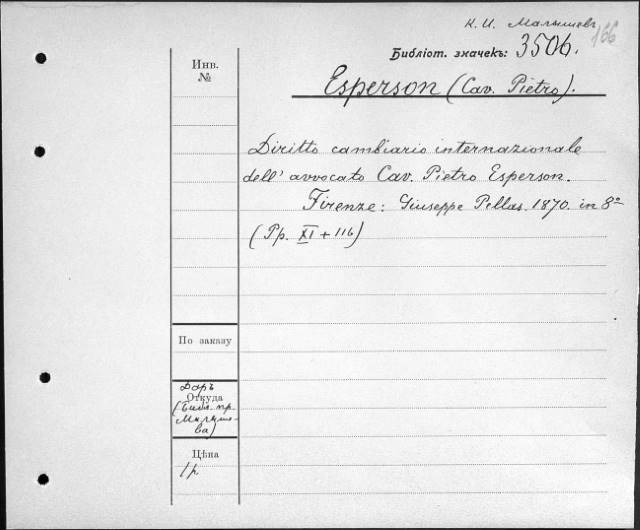 К. И. Малышевъ
166
Библіот. значекъ: 3506.
Инв.
№
Esperson (Cav. Pietro).
Diritto cambiario internazionale
dell' avvocato Cav. Pietro Esperson.
Firenze: Giuseppe Pellas. 1870. in 8º
(Pp. XI + 116)
По заказу
Даръ
Откуда
(Библ. пр.
Малыше-
ва)
Цѣна
1 р.